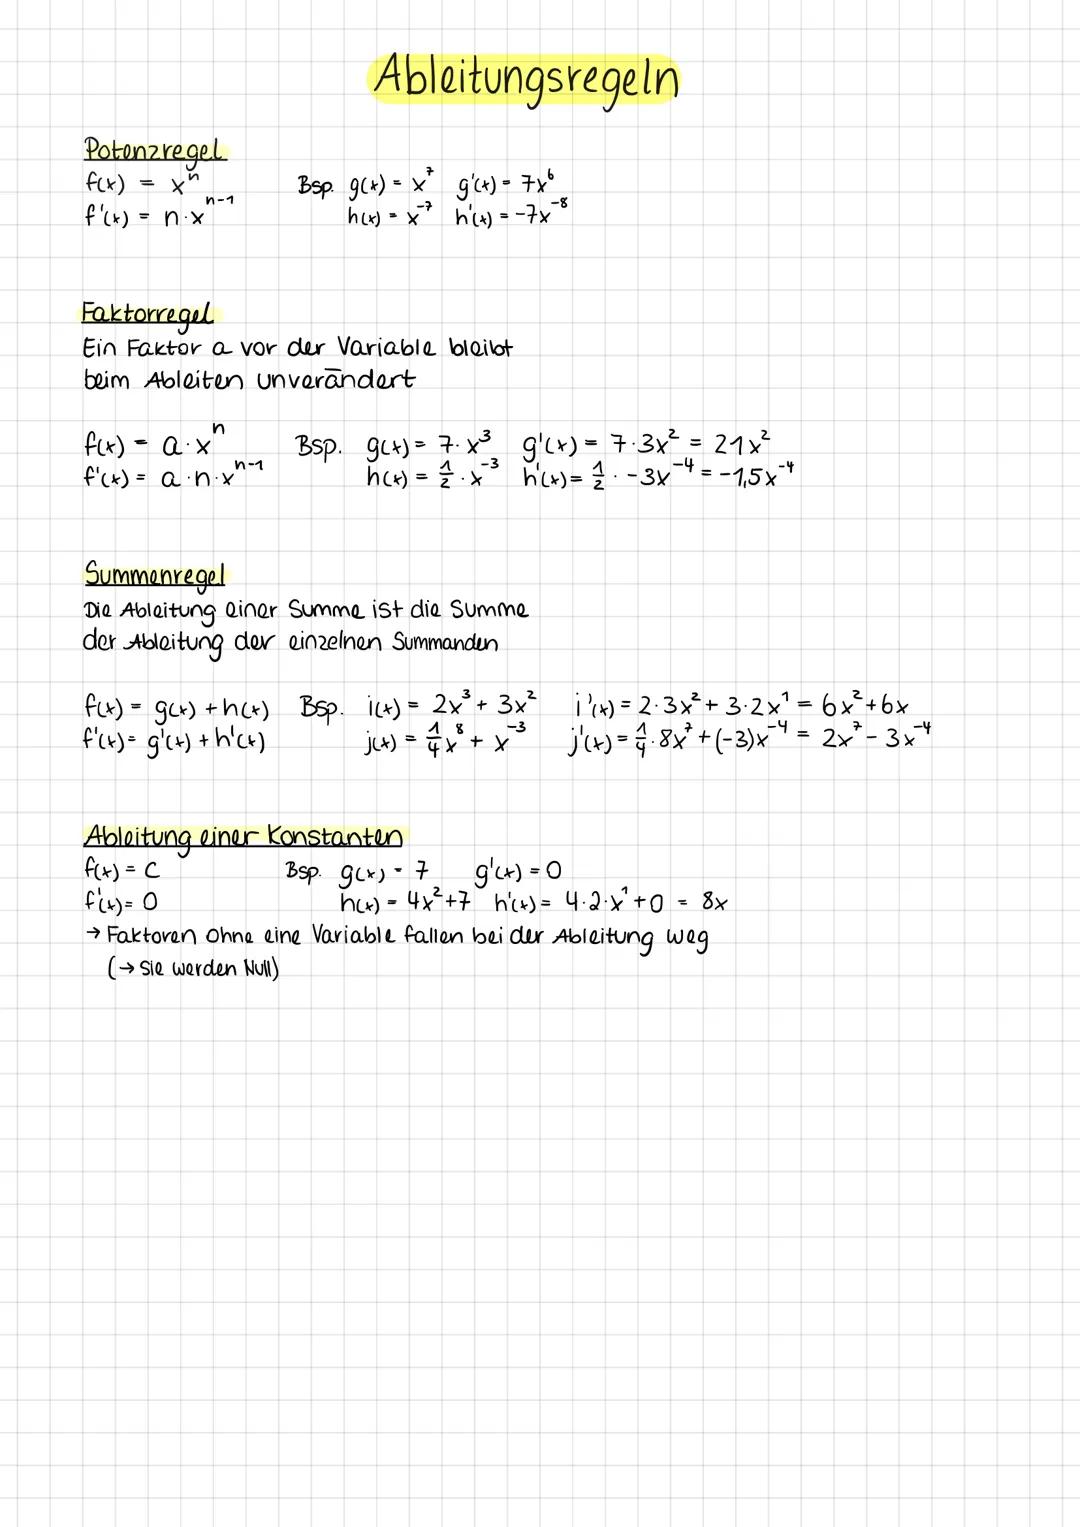 Ableitungsregeln
Potenzregel
f(x) = xⁿ Bsp. g(x) = x⁷ g'(x) = 7x⁶
f'(x) = n·xⁿ⁻¹ h(x) = x⁻⁷ h'(x) = -7x⁻⁸
Faktorregel
Ein Faktor a vor der Variable bleibt
beim Ableiten unverändert
f(x) = a·xⁿ Bsp. g(x) = 7·x³ g'(x) = 7·3x² = 21x²
f'(x) = a·n·xⁿ⁻¹ h(x) = 1/2·x⁻³ h'(x) = 1/2·-3x⁻⁴ = -1,5x⁻⁴
Summenregel
Die Ableitung einer Summe ist die Summe
der Ableitung der einzelnen Summanden
f(x) = g(x) + h(x) Bsp. i(x) = 2x³ + 3x² i'(x) = 2·3x² + 3·2x¹ = 6x² + 6x
f'(x) = g'(x) + h'(x) j(x) = 1/4x⁸ + x⁻³ j'(x) = 1/4·8x⁷ + (-3)x⁻⁴ = 2x⁷ - 3x⁻⁴
Ableitung einer Konstanten
f(x) = C Bsp. g(x) = 7 g'(x) = 0
f'(x) = 0 h(x) = 4x² + 7 h'(x) = 4·2·x¹ + 0 = 8x
→ Faktoren ohne eine Variable fallen bei der Ableitung weg
(→ sie werden Null)